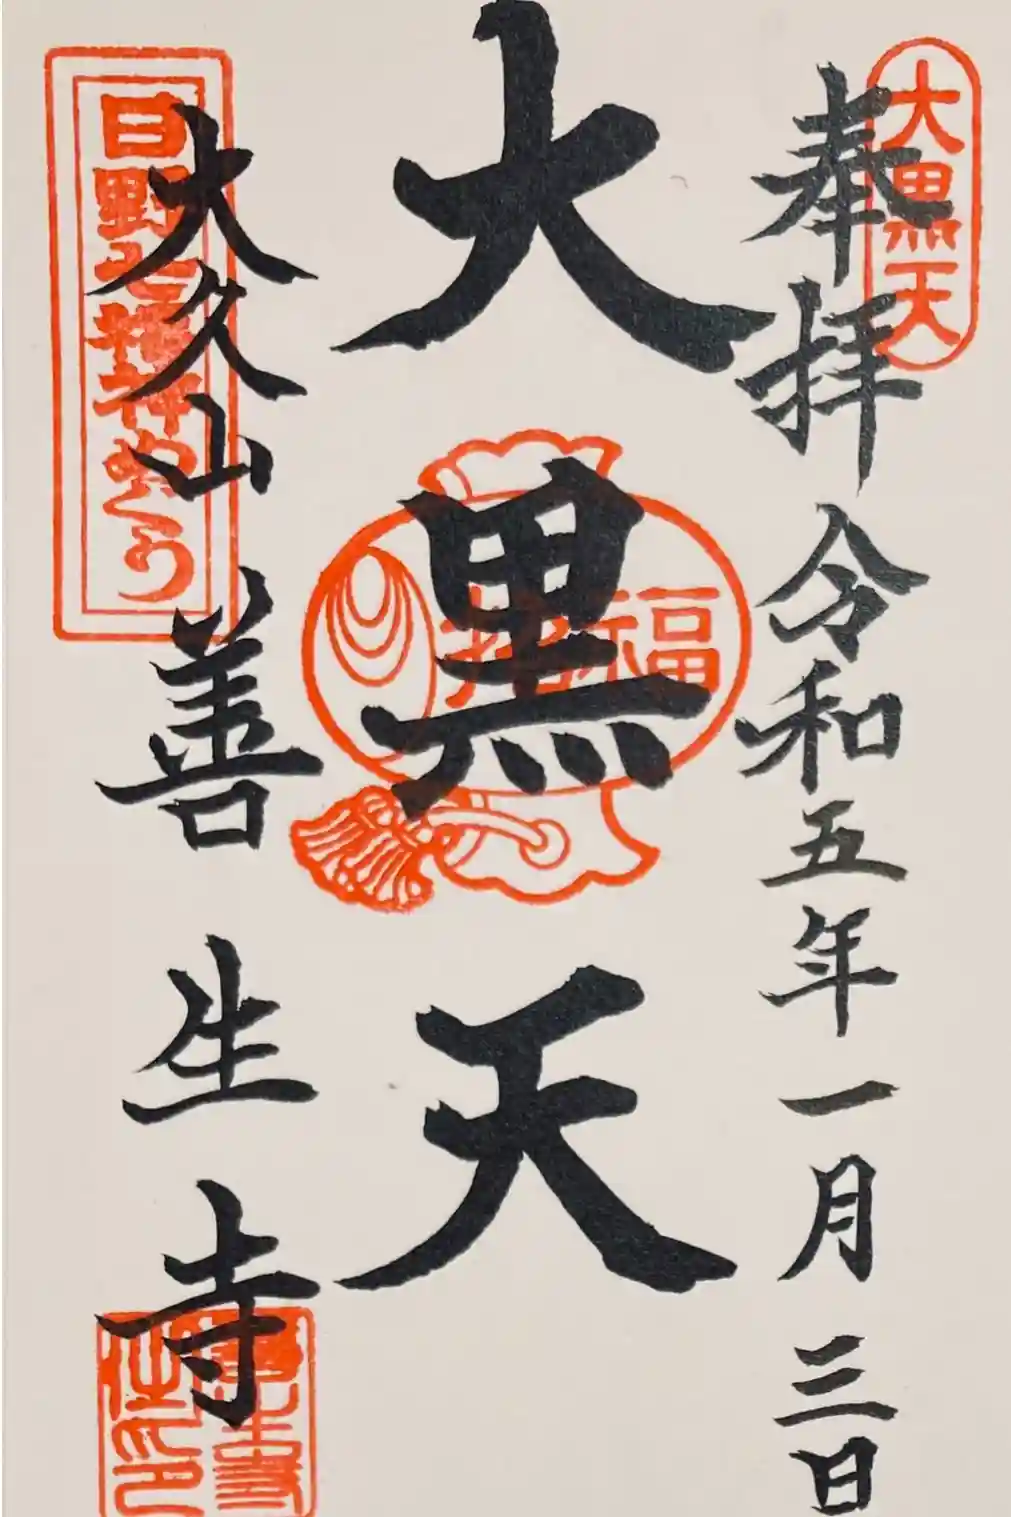 大黒天
奉拝 令和五年一月三日
大黒天
招福
大久山 善生寺
日野七福神めぐり